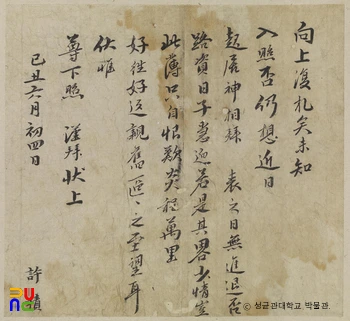 向上復札矣未知
入照否仍想近日
起居神相 之日無進退否
路資日子 迎若是其略 情
此薄只自恨歎炎程萬里
好往好返 舊區〻之至望耳
伏惟
尊下照 謹拜狀上
己丑六月初四日
許
© 성균관대학교 박물관.